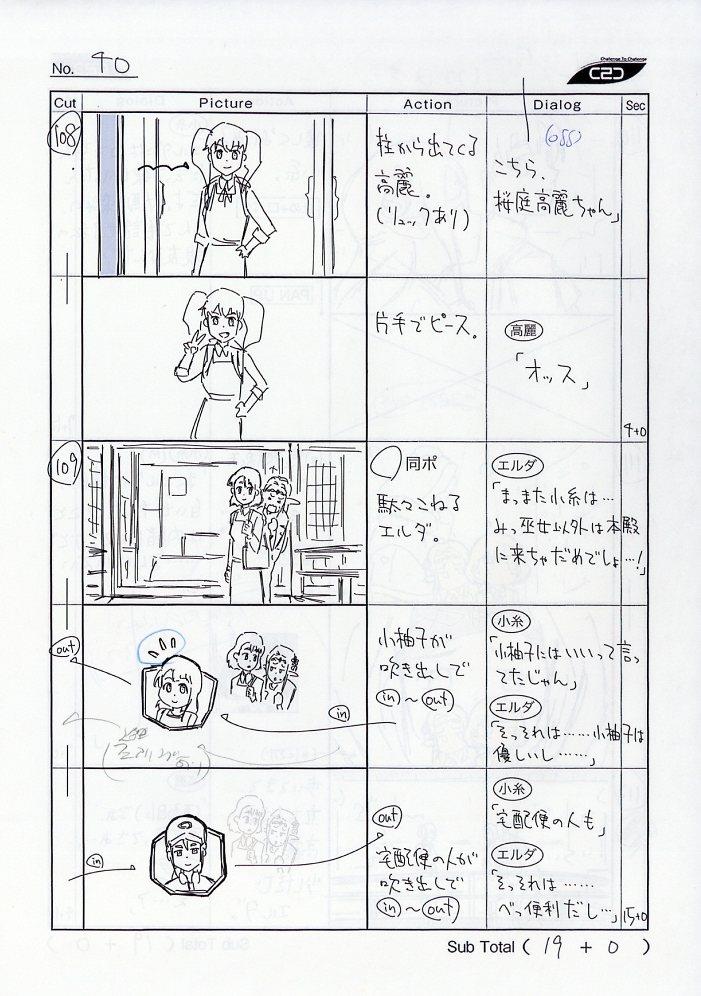 No. 40
Challenge To Challenge
C2C
Cut
Picture
Action
Dialog
Sec
108
柱から出てくる
高麗。
(リュックあり)
(OSS)
こちら、
桜庭高麗ちゃん」
片手でピース。
高麗
「オッス」
4+0
109
同ポ
駄々こねる
エルダ。
エルダ
「まっまた小糸は…
みっ巫女以外は本殿
に来ちゃだめでしょ…!」
out
in
小柚子が
吹き出しで
in～out
小糸
「小柚子にはいいって言っ
てたじゃん」
エルダ
「そっそれは……小柚子は
優しいし……」
in
out
宅配便の人が
吹き出しで
in～out
小糸
「宅配便の人も」
エルダ
「そっそれは……
べっ便利だし…」
15+0
Sub Total ( 19 + 0 )